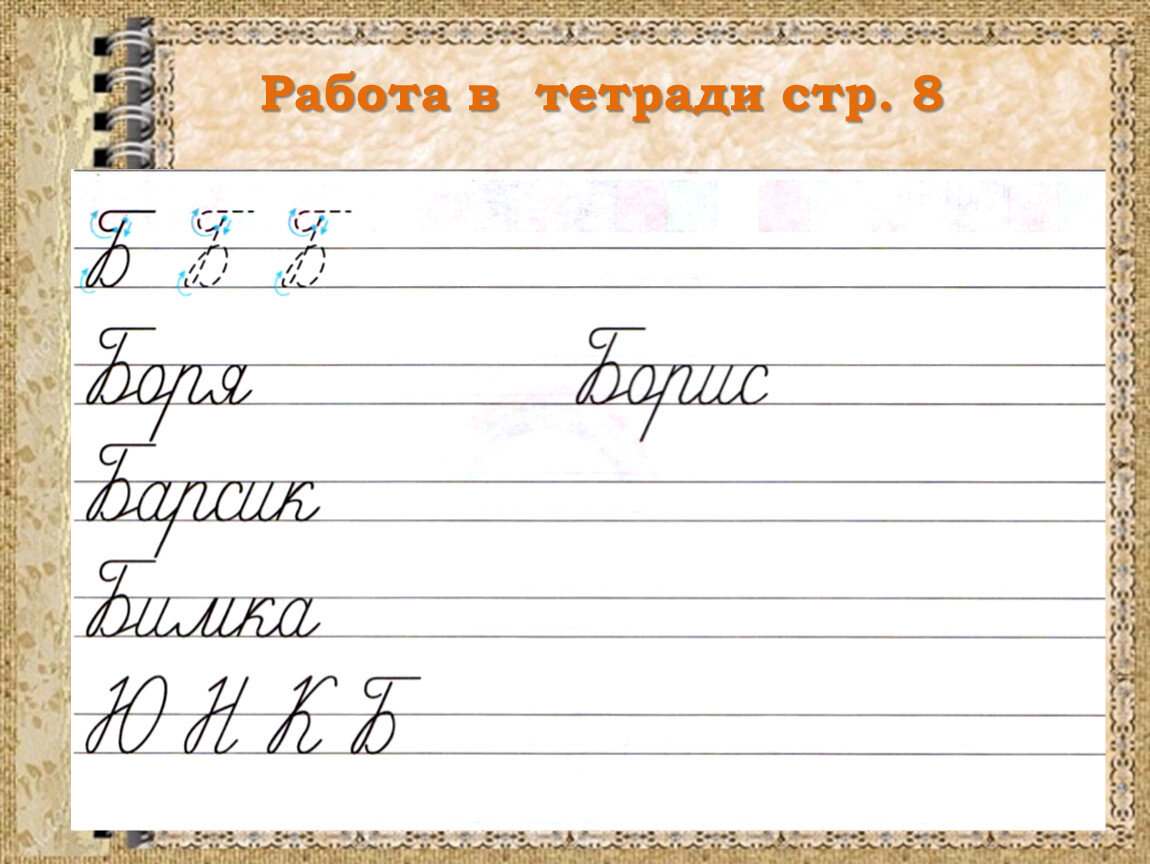 Работа в тетради стр. 8
Б Б Б
Боря Борис
Барсик
Бимка
Ю Н К Б